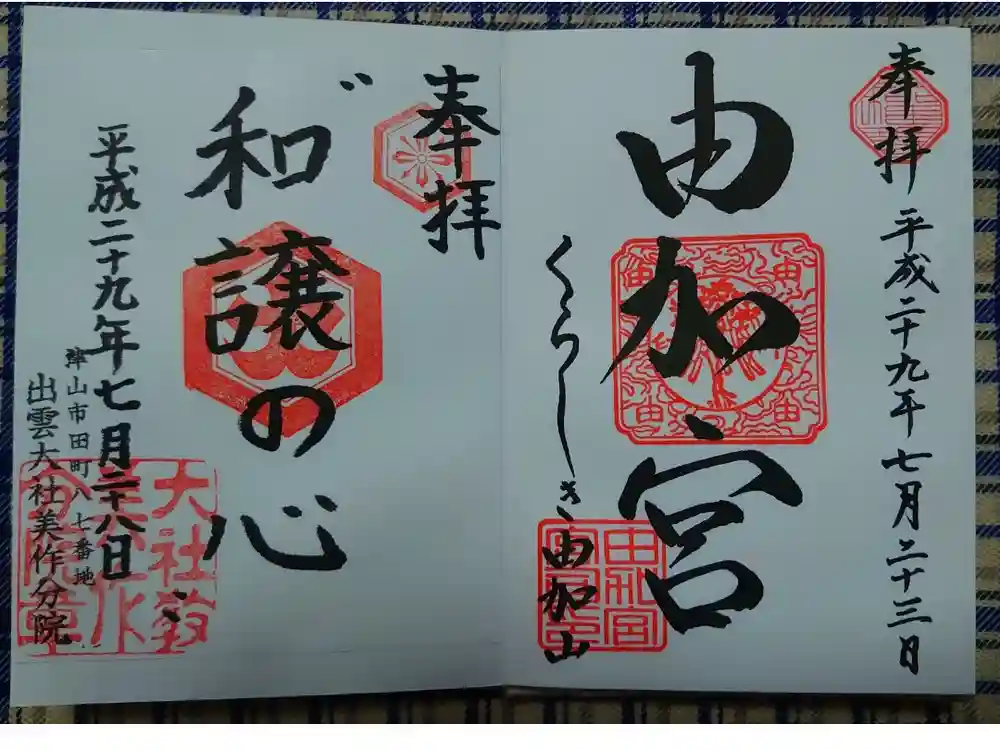 奉拝
平成二十九年七月二十三日
由加宮
くらしき由加山
奉拝
和譲の心
平成二十九年七月二十八日
津山市田町八七番地
出雲大社美作分院
大社教
美作
分院章